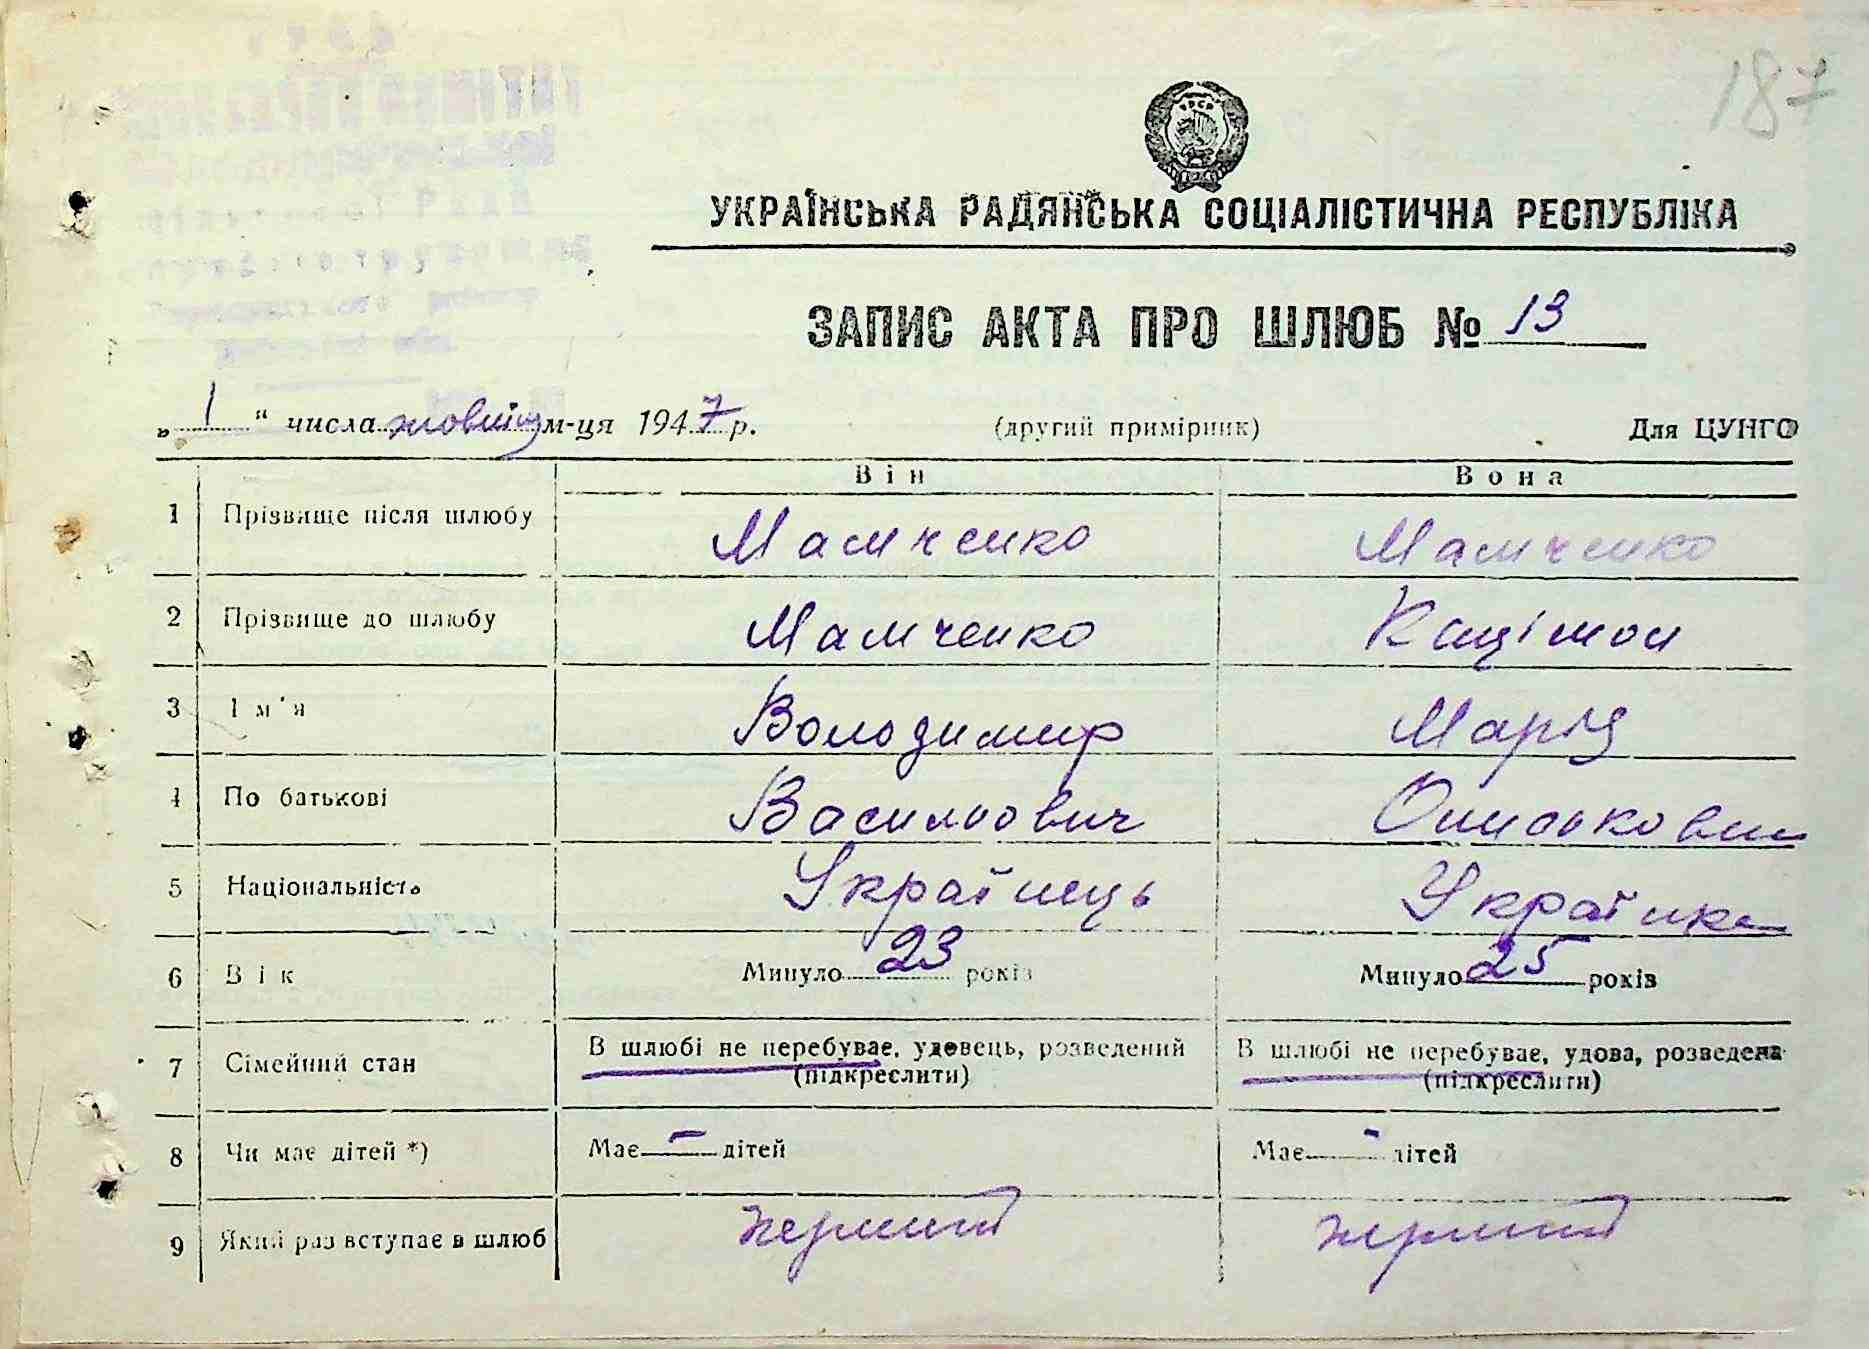 187
УКРАЇНСЬКА РАДЯНСЬКА СОЦІАЛІСТИЧНА РЕСПУБЛІКА
ЗАПИС АКТА ПРО ШЛЮБ № 13
„ 1 “ числа жовтня м-ця 1947 р. (другий примірник) Для ЦУНГО
Він Вона
1 Прізвище після шлюбу Мамченко Мамченко
2 Прізвище до шлюбу Мамченко
3 Ім'я Володимир Марія
4 По батькові Васильович
5 Національність Українець Українка
6 Вік Минуло 23 років Минуло 25 років
7 Сімейний стан В шлюбі не перебуває, удовець, розведений В шлюбі не перебуває, удова, розведена
(підкреслити) (підкреслити)
8 Чи має дітей *) Має – дітей Має - дітей
9 Який раз вступає в шлюб перший перший